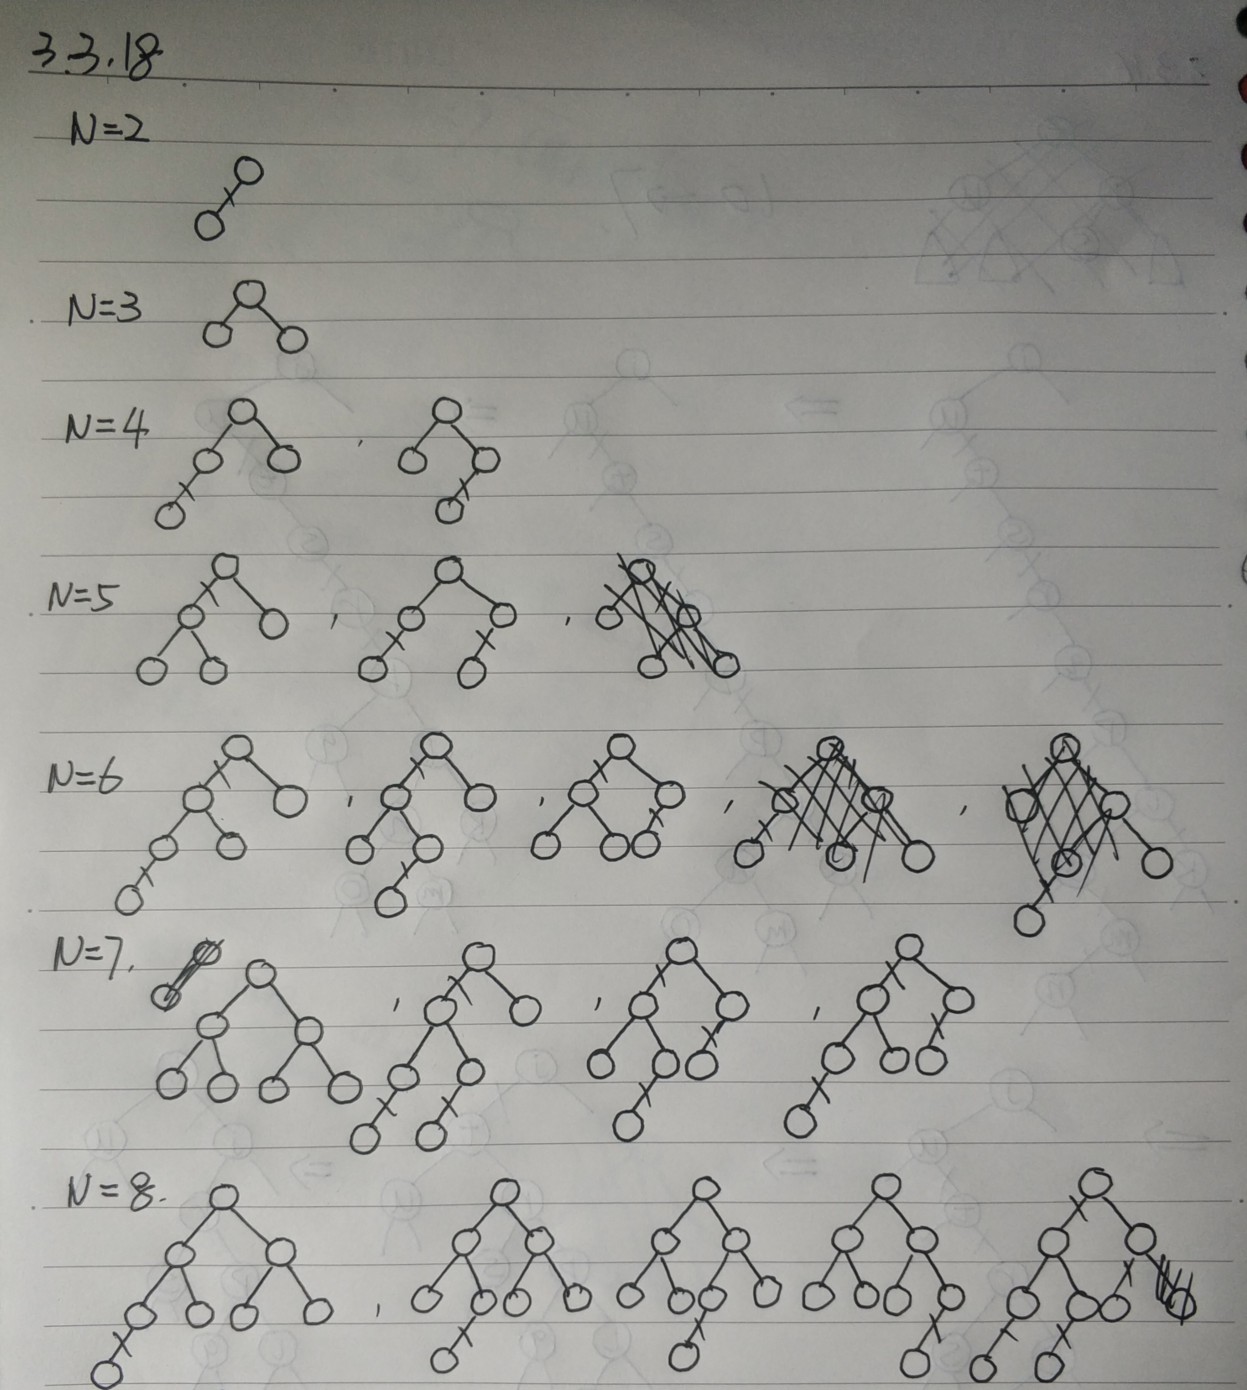 3.3.18
N=2
N=3
N=4 ,
N=5 , ,
N=6 , , , ,
N=7. , , ,
N=8. ,